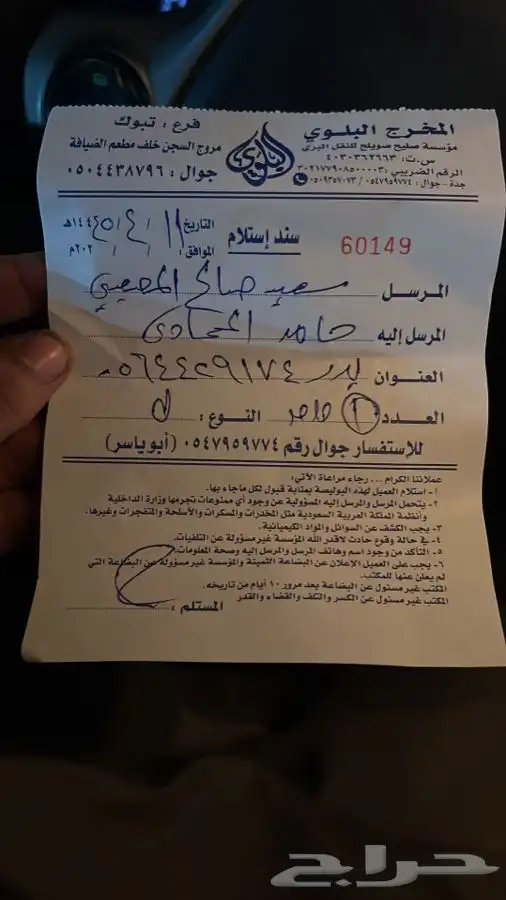 المخرج البلوي
مؤسسة صليح صويلح للنقل البري
س.ت: ٤٠٣٠٣٦٢٦٦٣
الرقم الضريبي: ٣٠٢١٧٧٩٠٨٥٠٠٠٠٣
جدة - جوال: ٠٥٤٧٩٥٩٧٧٤ / ٠٥٠٩٣٥٧٠٧٣
البلوي
فرع : تبوك
مروج السجن خلف مطعم الضيافة
جوال : ٠٥٠٤٤٣٨٧٩٦
60149
سند إستلام
التاريخ ١١ / ٤ / ١٤٤٥هـ
الموافق: / / ٢٠٢م
المرسل سعيد صالح
المرسل إليه حامد
العنوان بدر ٠٥٦٤٤٢٩١٧٤
العدد ١ واحد النوع :
للإستفسار جوال رقم ٠٥٤٧٩٥٩٧٧٤ (أبوياسر)
عملائنا الكرام ... رجاء مراعاة الآتي:
١- استلام العميل لهذه البوليصة بمثابة قبول لكل ماجاء بها.
٢- يتحمل المرسل والمرسل إليه المسؤولية عن وجود أي ممنوعات تجرمها وزارة الداخلية
وأنظمة المملكة العربية السعودية مثل المخدرات والمسكرات والأسلحة والمتفجرات وغيرها.
٣- يجب الكشف عن السوائل والمواد الكيميائية.
٤- في حالة وقوع حادث لاقدر الله المؤسسة غير مسؤولة عن التلفيات.
٥- التأكد من وجود اسم وهاتف المرسل والمرسل إليه وصحة المعلومات.
٦- يجب على العميل الإعلان عن البضاعة الثمينة والمؤسسة غير مسؤولة عن البضاعة التي
لم يعلن عنها للمكتب.
المكتب غير مسئول عن البضاعة بعد مرور ١٠ أيام من تاريخه.
المكتب غير مسئول عن الكسر والتلف والقضاء والقدر
المستلم :
حراج